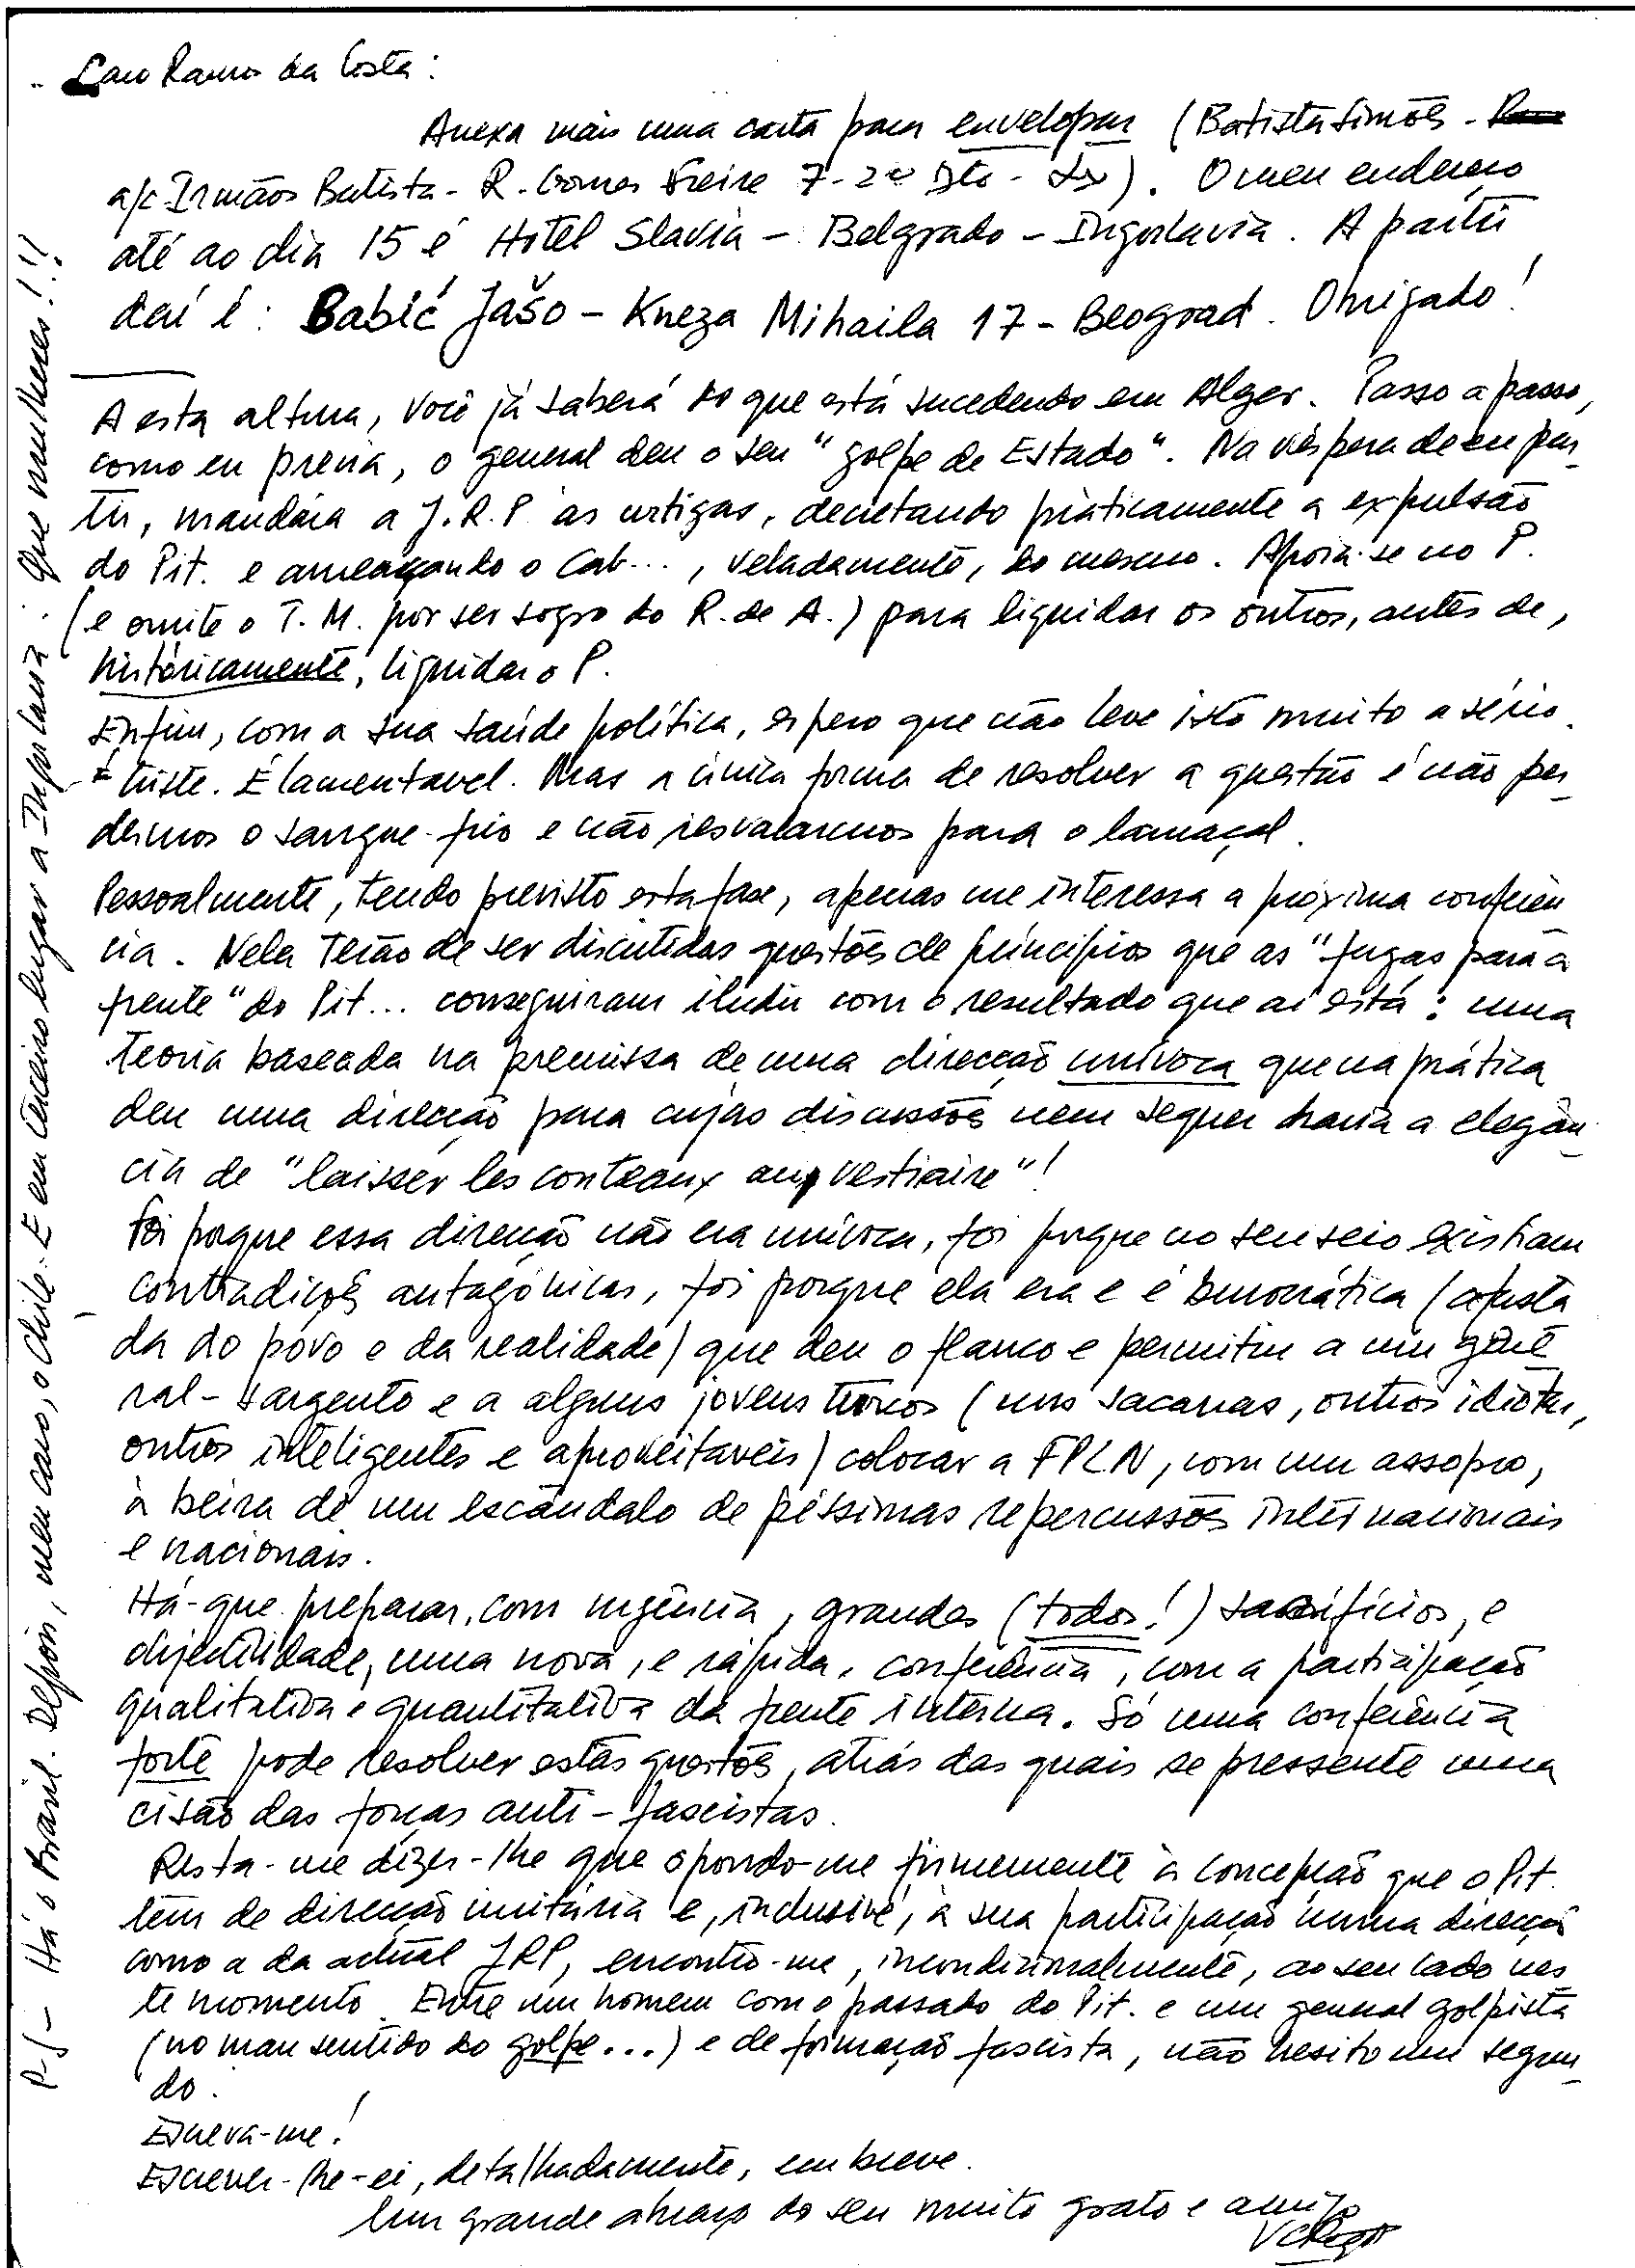 Caro Ramos da Costa:
Anexa mais uma carta para envelopar (Batista Simões -
a/c Irmãos Batista - R. Gomes Freire 7-2º Dto - Lx). O meu endereço
até ao dia 15 é Hotel Slavia - Belgrado - Iugoslavia. A partir
daí é: Babić Jašo - Kneza Mihaila 17 - Beograd. Obrigado!
A esta altura, você já saberá do que está sucedendo em Alger. Passo a passo,
como eu previa, o general deu o seu "golpe de Estado". Na véspera de eu par-
tir, mandára a J.R.P. às urtigas, decretando pràticamente a expulsão
do Pit. e ameaçando o Cab..., veladamente, do mesmo. Apoia-se no P.
(e omite o T.M. por ser sogro do R. de A.) para liquidar os outros, antes de,
històricamente, liquidar o P.
Enfim, com a sua saúde política, espero que não leve isto muito a sério.
É triste. É lamentavel. Mas a única forma de resolver a questão é não per-
dermos o sangue-frio e não resvalarmos para o lamaçal.
Pessoalmente, tendo previsto esta fase, apenas me interessa a próxima conferên
cia. Nela terão de ser discutidas questões de princípios que as "fugas para a
frente" do Pit... conseguiram iludir com o resultado que aí está: uma
teoria baseada na premissa de uma direcção unívoca que na prática
deu uma direcção para cujas discussões nem sequer havia a elegân-
cia de "laisser les couteaux au vestiaire"!
Foi porque essa direcção não era unívoca, foi porque no seu seio existiam
contradições antagónicas, foi porque ela era e é burocrática (afasta
da do povo e da realidade) que deu o flanco e permitiu a um gene
ral-sargento e a alguns jovens turcos (uns sacanas, outros idiotas,
outros inteligentes e aproveitaveis) colocar a FPLN, com um assopro,
à beira de um escândalo de péssimas repercussões internacionais
e nacionais.
Há-que preparar, com urgência, grandes (todos!) sacrifícios, e
objectividade, uma nova, e rápida, conferência, com a participação
qualitativa e quantitativa da frente interna. Só uma conferência
forte pode resolver estas questões, atrás das quais se pressente uma
cisão das forças anti-fascistas.
Resta-me dizer-lhe que opondo-me firmemente à concepção que o Pit.
tem de direcção unitária e, inclusivé, à sua participação numa direcção
como a da actual JRP, encontro-me, incondicionalmente, ao seu lado nes
te momento. Entre um homem com o passado do Pit. e um general golpista
(no mau sentido do golpe...) e de formação fascista, não hesito um segun-
do.
Escreva-me!
Escrever-lhe-ei, detalhadamente, em breve.
Um grande abraço do seu muito grato e amigo
P.S - Há o Brasil. Depois, meu caro, o Chile. E em terceiro lugar a Iugoslavia. Que mulheres!!!